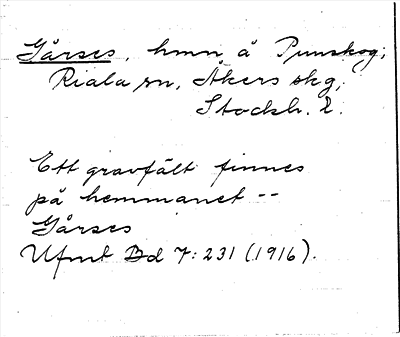 Gårses, hmn å Punskog;
Riala sn, Åkers skg,
Stockh. l.
Ett gravfält finnes
på hemmanet --
Gårses
Ufmt Bd 7:231 (1916).